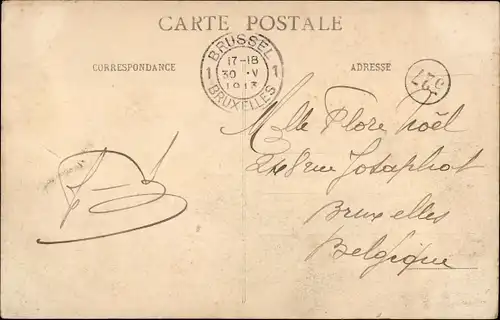 CARTE POSTALE
CORRESPONDANCE
ADRESSE
BRUSSEL
1 17-18 1
30 V
1913
BRUXELLES
Melle Flore Noël
rue Josaphat
Bruxelles
Belgique